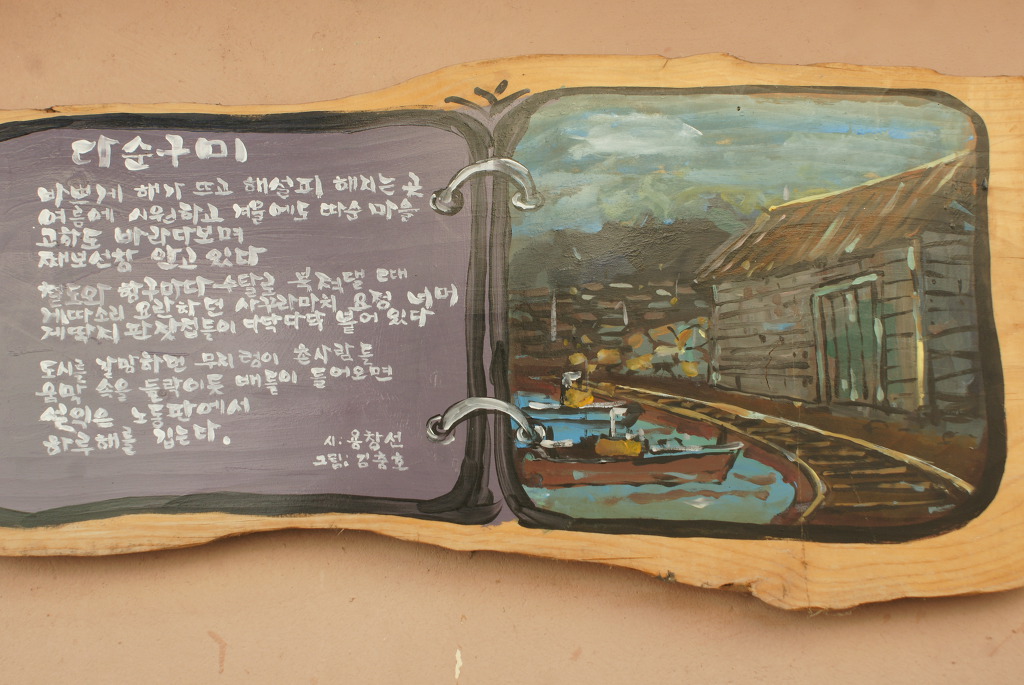 다순구미
바쁘게 해가 뜨고 해설피 해지는 곳
여름에 시원하고 겨울에도 따순 마을
고하도 바라다보며
째보선창 안고 있다
철도와 항구마다 수탈로 북적댈 때
게따소리 요란하던 사공과마치 요정 너머
게딱지 판잣집들이 다딱다딱 붙어 있다
도시를 갈망하면 무지렁이 촌사람들
움막 속을 들락이듯 배들이 들어오면
선의은 노동판에서
하루해를 깁는다.
시: 용창선
그림: 김충호